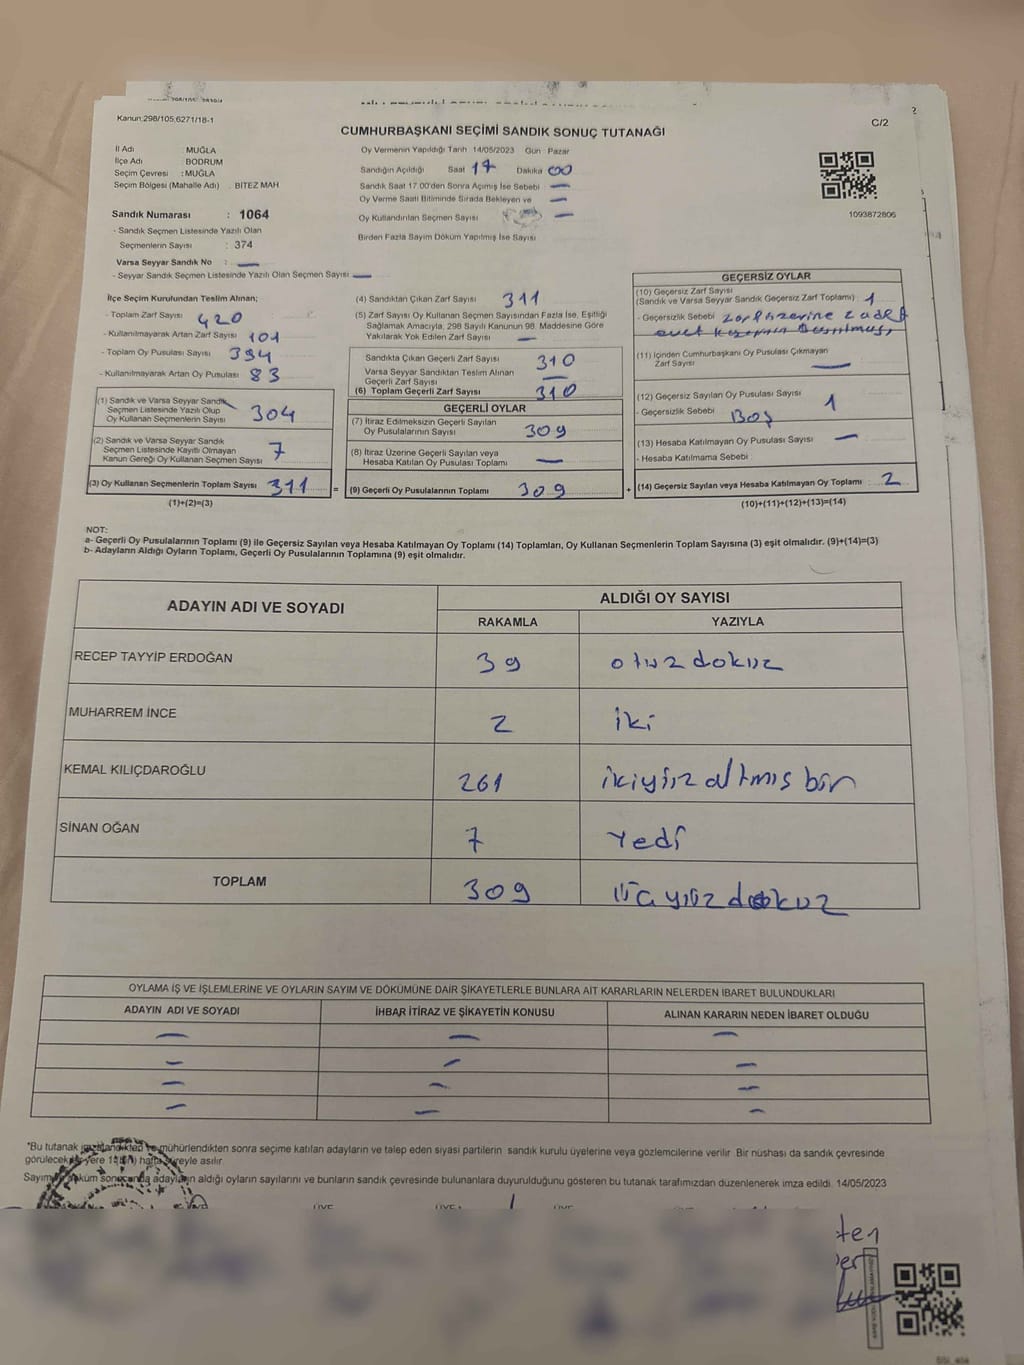 Kanun:298/105;6271/18-1
CUMHURBAŞKANI SEÇİMİ SANDIK SONUÇ TUTANAĞI
C/2
İl Adı : MUĞLA
İlçe Adı : BODRUM
Seçim Çevresi : MUĞLA
Seçim Bölgesi (Mahalle Adı) : BİTEZ MAH
Oy Vermenin Yapıldığı Tarih 14/05/2023 Gün : Pazar
Sandığın Açıldığı Saat 17 Dakika 00
Sandık Saat 17.00'den Sonra Açımış İse Sebebi —
Oy Verme Saati Bitiminde Sırada Bekleyen ve —
Oy Kullandırılan Seçmen Sayısı —
Birden Fazla Sayım Döküm Yapılmış İse Sayısı
1093872806
Sandık Numarası : 1064
- Sandık Seçmen Listesinde Yazılı Olan
Seçmenlerin Sayısı : 374
Varsa Seyyar Sandık No : —
- Seyyar Sandık Seçmen Listesinde Yazılı Olan Seçmen Sayısı —
İlçe Seçim Kurulundan Teslim Alınan;
- Toplam Zarf Sayısı 420
- Kullanılmayarak Artan Zarf Sayısı 101
- Toplam Oy Pusulası Sayısı 394
- Kullanılmayarak Artan Oy Pusulası 83
(1) Sandık ve Varsa Seyyar Sandık
Seçmen Listesinde Yazılı Olup
Oy Kullanan Seçmenlerin Sayısı 304
(2) Sandık ve Varsa Seyyar Sandık
Seçmen Listesinde Kayıtlı Olmayan
Kanun Gereği Oy Kullanan Seçmen Sayısı 7
(3) Oy Kullanan Seçmenlerin Toplam Sayısı 311
(1)+(2)=(3)
(4) Sandıktan Çıkan Zarf Sayısı 311
(5) Zarf Sayısı Oy Kullanan Seçmen Sayısından Fazla İse, Eşitliği
Sağlamak Amacıyla, 298 Sayılı Kanunun 98. Maddesine Göre
Yakılarak Yok Edilen Zarf Sayısı —
Sandıkta Çıkan Geçerli Zarf Sayısı 310
Varsa Seyyar Sandıktan Teslim Alınan
Geçerli Zarf Sayısı —
(6) Toplam Geçerli Zarf Sayısı 310
GEÇERLİ OYLAR
(7) İtiraz Edilmeksizin Geçerli Sayılan
Oy Pusulalarının Sayısı 309
(8) İtiraz Üzerine Geçerli Sayılan veya
Hesaba Katılan Oy Pusulası Toplamı —
= (9) Geçerli Oy Pusulalarının Toplamı 309
GEÇERSİZ OYLAR
(10) Geçersiz Zarf Sayısı
(Sandık ve Varsa Seyyar Sandık Geçersiz Zarf Toplamı) 1
- Geçersizlik Sebebi zarf üzerine 2 adet
evet
(11) İçinden Cumhurbaşkanı Oy Pusulası Çıkmayan
Zarf Sayısı —
(12) Geçersiz Sayılan Oy Pusulası Sayısı 1
- Geçersizlik Sebebi BOŞ
(13) Hesaba Katılmayan Oy Pusulası Sayısı —
- Hesaba Katılmama Sebebi :
+ (14) Geçersiz Sayılan veya Hesaba Katılmayan Oy Toplamı : 2
(10)+(11)+(12)+(13)=(14)
NOT:
a- Geçerli Oy Pusulalarının Toplamı (9) ile Geçersiz Sayılan veya Hesaba Katılmayan Oy Toplamı (14) Toplamları, Oy Kullanan Seçmenlerin Toplam Sayısına (3) eşit olmalıdır. (9)+(14)=(3)
b- Adayların Aldığı Oyların Toplamı, Geçerli Oy Pusulalarının Toplamına (9) eşit olmalıdır.
ADAYIN ADI VE SOYADI
ALDIĞI OY SAYISI
RAKAMLA YAZIYLA
RECEP TAYYİP ERDOĞAN 39 otuzdokuz
MUHARREM İNCE 2 iki
KEMAL KILIÇDAROĞLU 261 ikiyüz altmış bir
SİNAN OĞAN 7 Yedi
TOPLAM 309 üçyüzdokuz
OYLAMA İŞ VE İŞLEMLERİNE VE OYLARIN SAYIM VE DÖKÜMÜNE DAİR ŞİKAYETLERLE BUNLARA AİT KARARLARIN NELERDEN İBARET BULUNDUKLARI
ADAYIN ADI VE SOYADI İHBAR İTİRAZ VE ŞİKAYETİN KONUSU ALINAN KARARIN NEDEN İBARET OLDUĞU
— — —
— — —
— — —
— — —
*Bu tutanak imzalandıktan ve mühürlendikten sonra seçime katılan adayların ve talep eden siyasi partilerin sandık kurulu üyelerine veya gözlemcilerine verilir. Bir nüshası da sandık çevresinde
görülecek bir yere 1 hafta süreyle asılır.
Sayım ve döküm sonucunda adayların aldığı oyların sayılarını ve bunların sandık çevresinde bulunanlara duyurulduğunu gösteren bu tutanak tarafımızdan düzenlenerek imza edildi. 14/05/2023
ÜYE ÜYE ÜYE